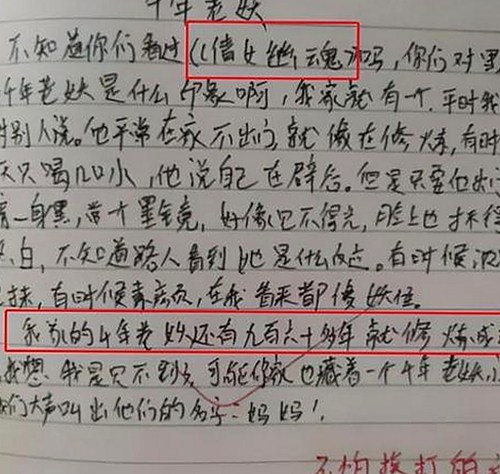 千年老妖
不知道你们看过《《倩女幽魂》吗,你们对里
千年老妖是什么印象啊,我家就有一个.平时我
别人说。他平常在家不出门,就像在修炼,有时
天只喝几口水,他说自己在辟谷。但是只要他出门
一身黑,带个墨镜,好像见不得光,脸上也抹得
白,不知道路人看到他是什么反应。有时候浓
抹,有时候素颜,在我看来都像妖怪。
我家的千年老妖,还有九百六十多年就修炼成
我想,我是见不到了,可能你家也藏着一个千年老妖,
们大声叫出他们的名字:妈妈!
不怕挨打的